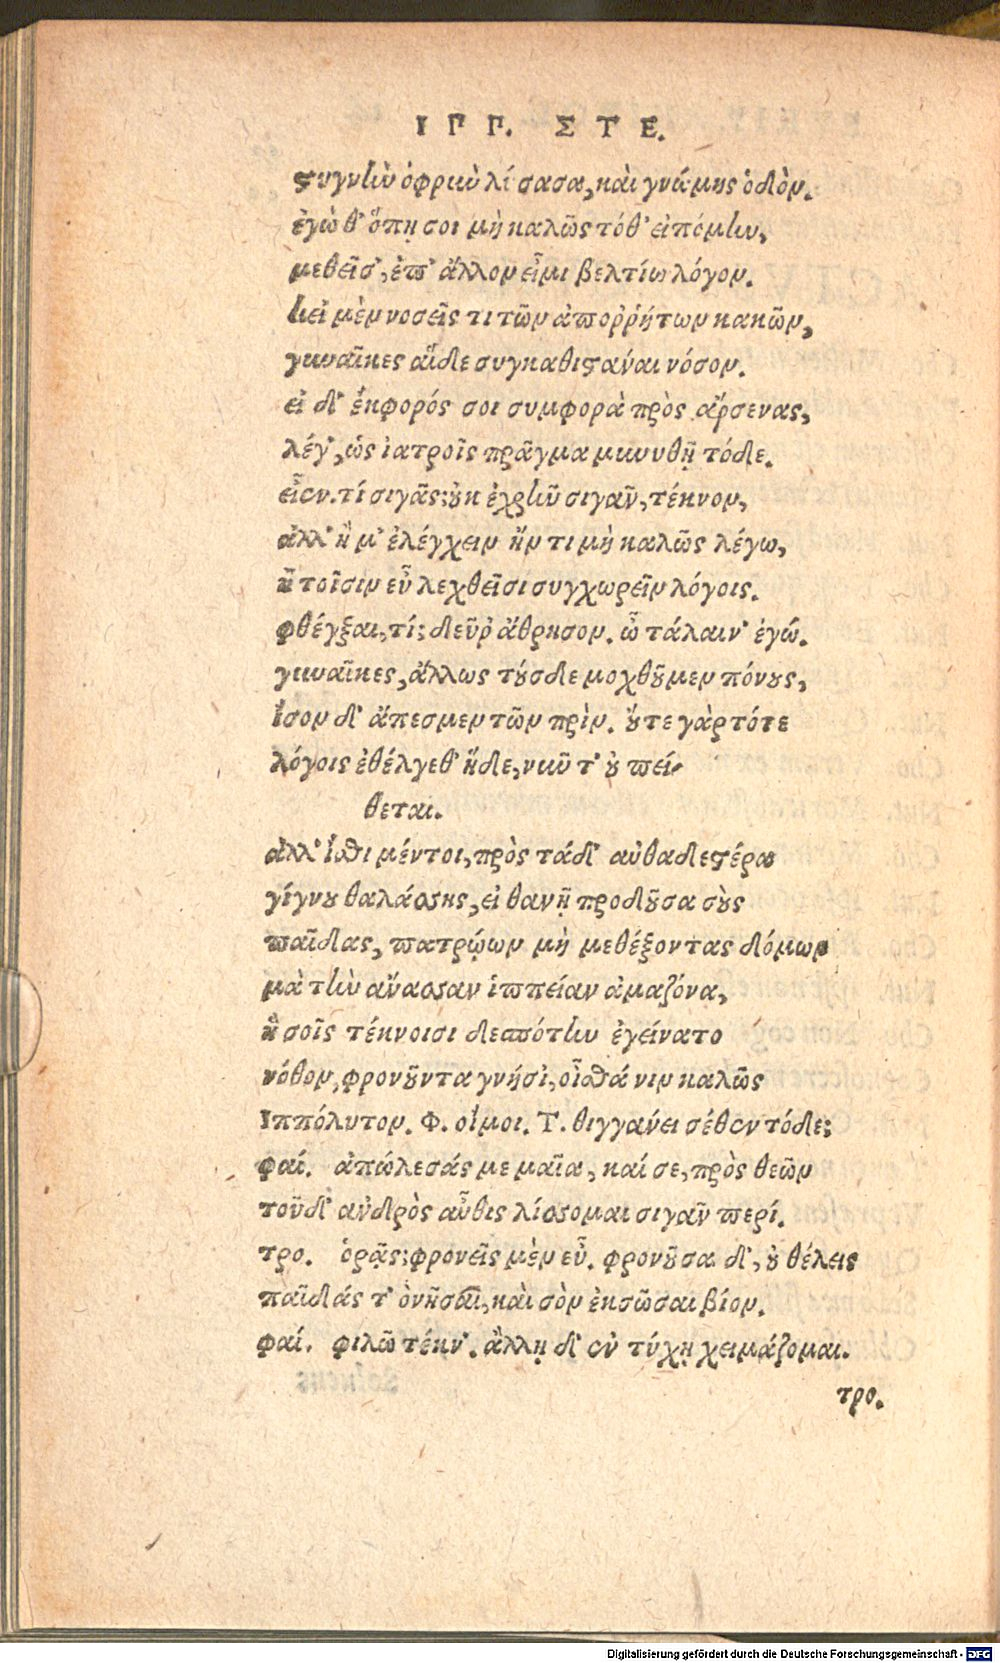 ΙΠΠ. ΣΤΕ.
στυγνὴν ὀφρὺν λύσασα, καὶ γνώμης ὁδὸν.
ἐγώ θ' ὅπῃ σοι μὴ καλῶς τόθ' εἰπόμην,
μεθεῖσ', ἐπ' ἄλλον εἶμι βελτίω λόγον.
κεἰ μὲν νοσεῖς τι τῶν ἀποῤῥήτων κακῶν,
γυναῖκες αἵδε συγκαθιστάναι νόσον.
εἰ δ' ἔκφορός σοι συμφορὰ πρὸς ἄρσενας,
λέγ', ὡς ἰατροῖς πρᾶγμα μηνυθῇ τόδε.
εἶεν. τί σιγᾷς; οὐκ ἐχρῆν σιγᾶν, τέκνον,
ἀλλ' ἢ μ' ἐλέγχειν ἤν τι μὴ καλῶς λέγω,
ἢ τοῖσιν εὖ λεχθεῖσι συγχωρεῖν λόγοις.
φθέγξαι, τί; δεῦρ' ἄθρησον. ὦ τάλαιν' ἐγώ.
γυναῖκες, ἄλλως τούσδε μοχθοῦμεν πόνους,
ἴσον δ' ἄπεσμεν τῶν πρὶν. οὔτε γὰρ τότε
λόγοις ἐθέλγεθ' ἥδε, νῦν τ' οὐ πεί-
θεται.
ἀλλ' ἴσθι μέντοι, πρὸς τάδ' αὐθαδεστέρα
γίγνου θαλάσσης, εἰ θανῇ προδοῦσα σοὺς
παῖδας, πατρῴων μὴ μεθέξοντας δόμων
μὰ τὴν ἄνασσαν ἱππείαν ἀμαζόνα,
ἣ σοῖς τέκνοισι δεσπότην ἐγείνατο
νόθον, φρονοῦντα γνήσι', οἶσθά νιν καλῶς
Ἱππόλυτον. Φ. οἴμοι. Τ. θιγγάνει σέθεν τόδε;
φαί. ἀπώλεσάς με μαῖα, καί σε, πρὸς θεῶν
τοῦδ' ἀνδρὸς αὖθις λίσσομαι σιγᾶν περί.
τρο. ὁρᾷς; φρονεῖς μὲν εὖ. φρονοῦσα δ', οὐ θέλεις
παῖδάς τ' ὀνῆσαι, καὶ σὸν ἐκσῶσαι βίον.
φαί. φιλῶ τέκν'. ἄλλῃ δ' ἐν τύχῃ χειμάζομαι.
τρο.
Digitalisierung gefördert durch die Deutsche Forschungsgemeinschaft - DFG